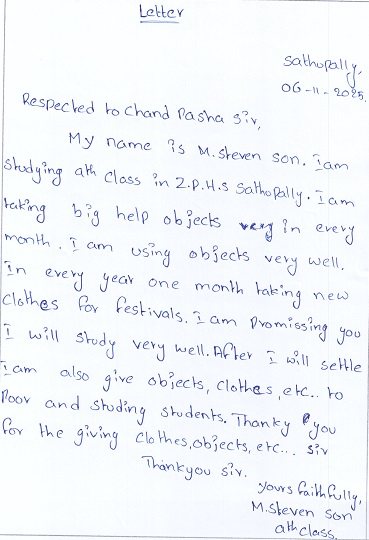 Letter
Sathupally,
06-11-2025.
Respected to Chand Pasha Sir,
My name is M.Steven son. I am
Studying 9th Class in Z.P.H.S Sathupally. I am
taking big help objects very in every
month. I am using objects very well.
In every year one month taking new
Clothes for festivals. I am Promissing you
I will study very well. After I will settle
I am also give objects, Clothes, etc.. to
Poor and studing students. Thanky you
for the giving Clothes, objects, etc... Sir
Thankyou Sir.
yours faithfully,
M.Steven son
9th class.